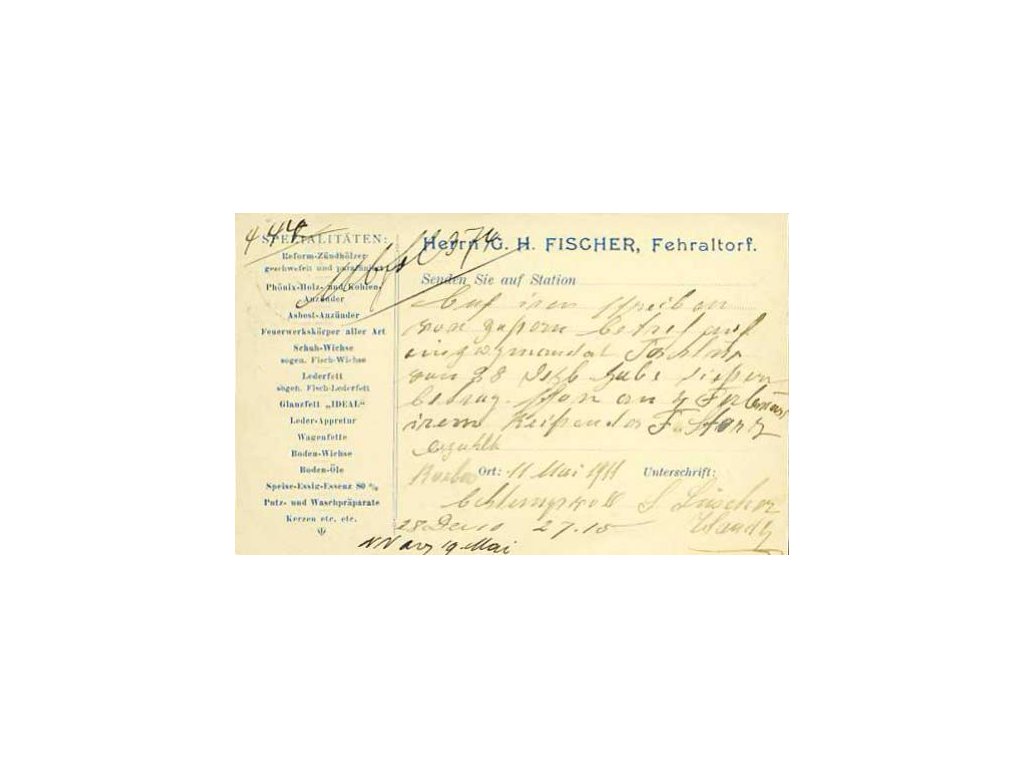 444
SPEZIALITÄTEN:
Reform-Zündhölzer
geschwefelt und paraffiniert
Phönix-Holz- und Kohlen-
Anzünder
Asbest-Anzünder
Feuerwerkskörper aller Art
Schuh-Wichse
sogen. Fisch-Wichse
Lederfett
sogen. Fisch-Lederfett
Glanzfett „IDEAL“
Leder-Appretur
Wagenfette
Boden-Wichse
Boden-Öle
Speise-Essig-Essenz 80 %
Putz- und Waschpräparate
Kerzen etc. etc.
374
Herrn G. H. FISCHER, Fehraltorf.
Senden Sie auf Station
Auf iren schreiben
von gestern betref
von 28 Dezb habe diesen
betrag schon an
irem Reisenden F. Storz
bezahlt
Ort: 11 Mai 1911 Unterschrift:
Achtungsvoll
28 Dez 10 27.15
19 Mai